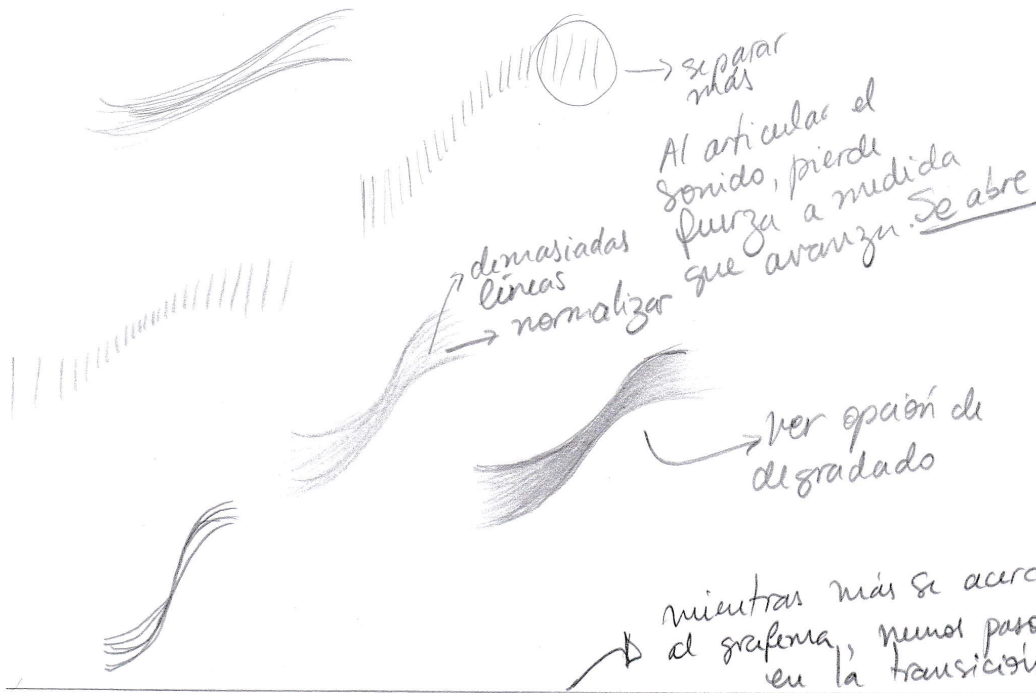 separar
más
Al articular el
sonido, pierde
fuerza a medida
que avanza. Se abre
demasiadas
líneas
normalizar
ver opción de
degradado
mientras más se acerc
al grafema, menos paso
en la transición